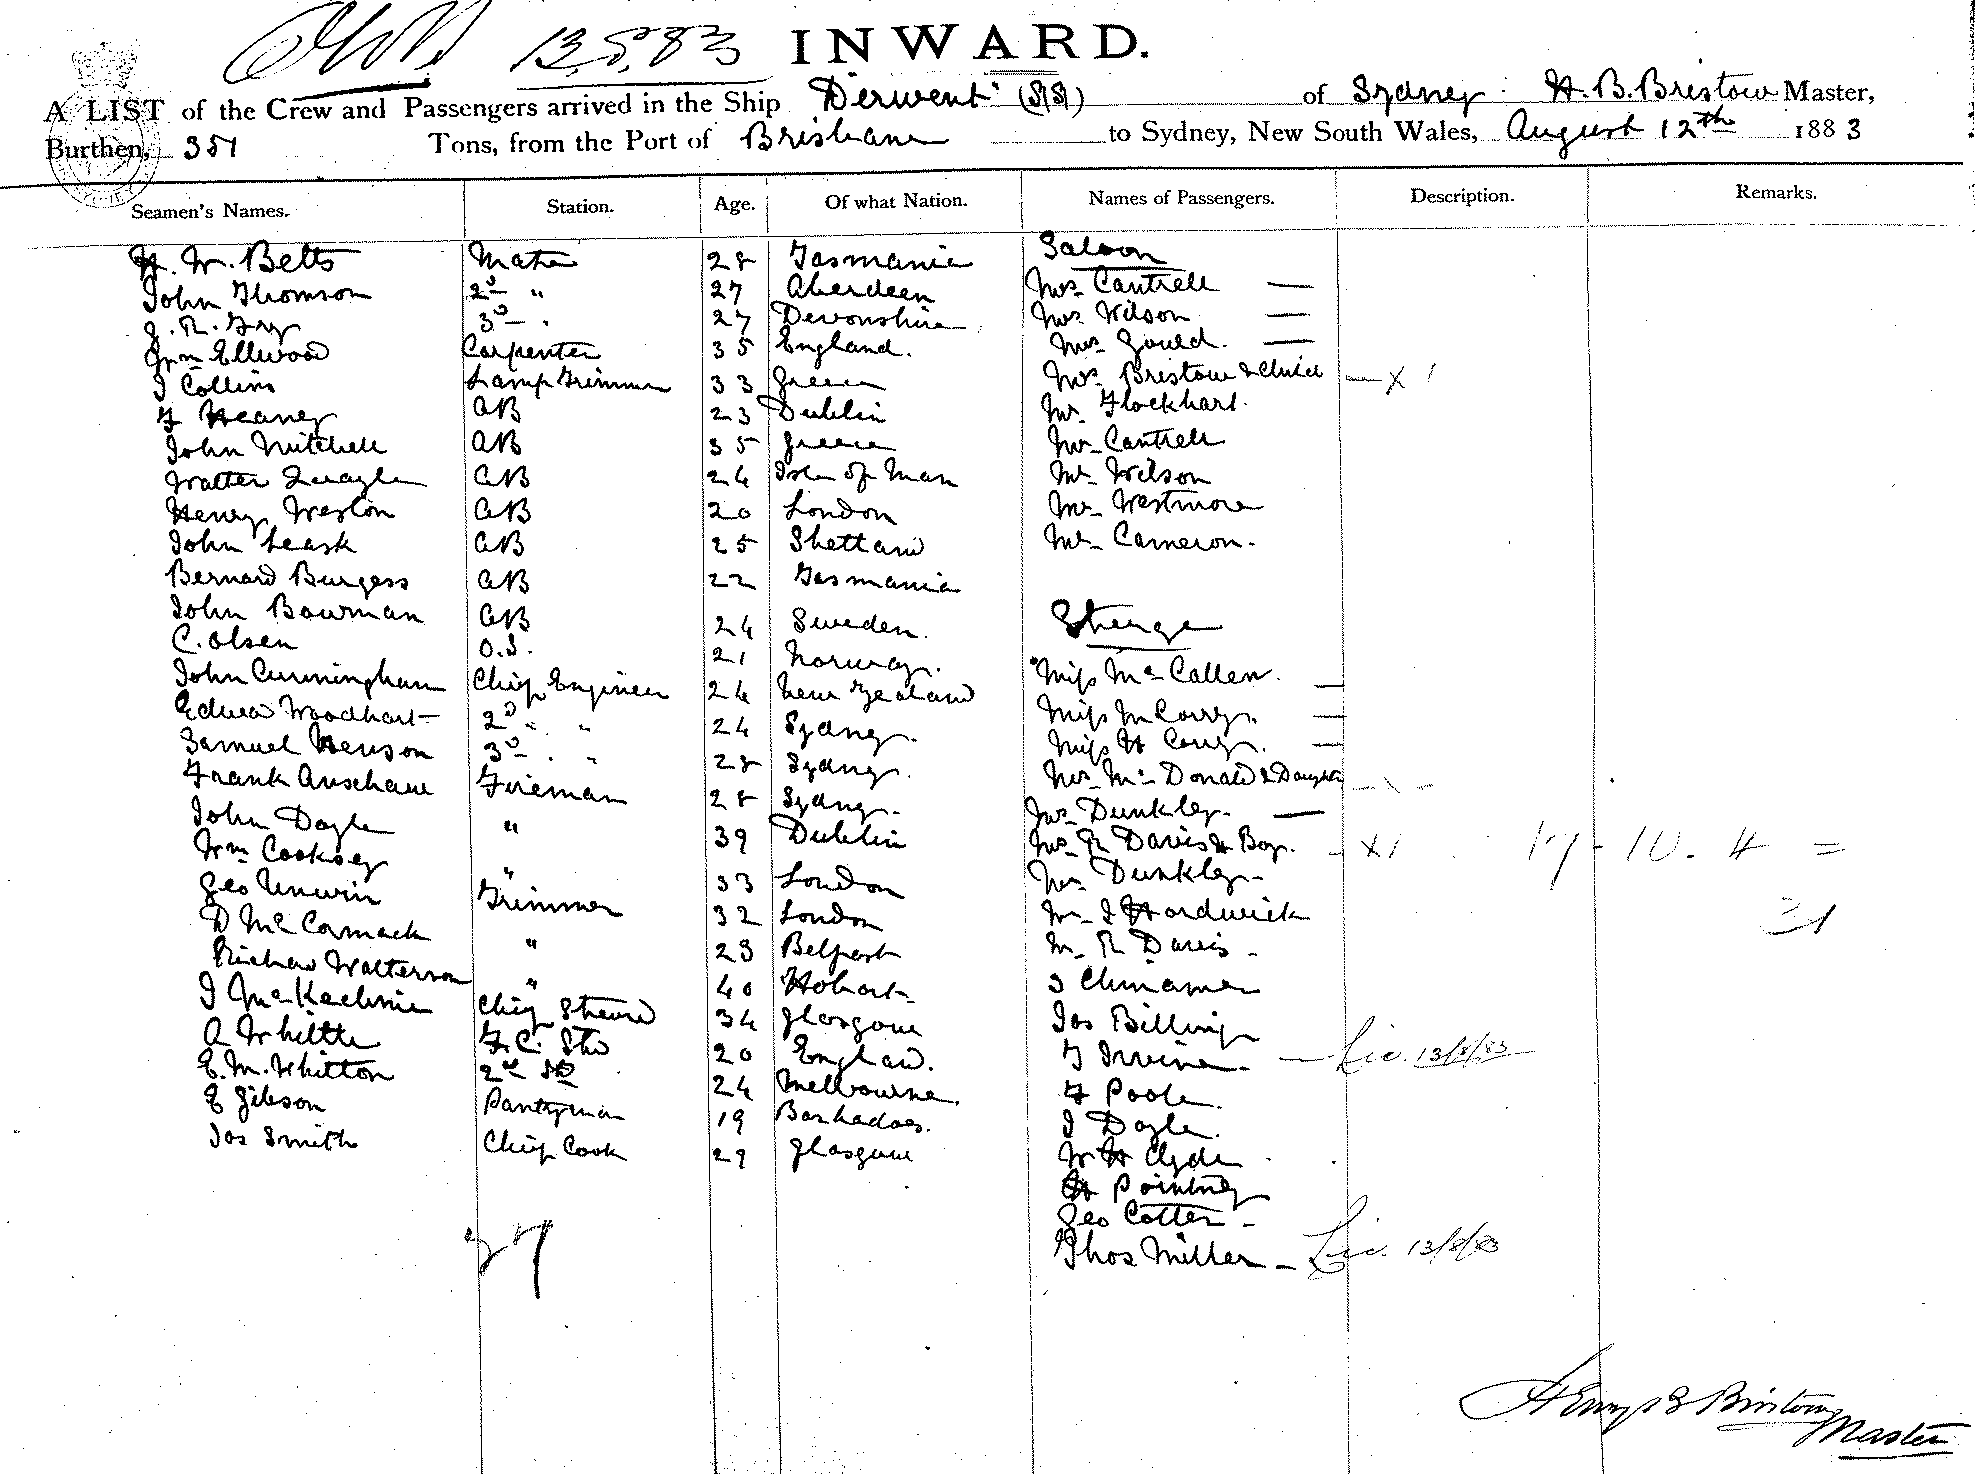 13.8.83 INWARD.
A LIST of the Crew and Passengers arrived in the Ship Derwent (SS) of Sydney H. B. Bristow Master,
Burthen, 351 Tons, from the Port of Brisbane to Sydney, New South Wales, August 12th 1883
Seamen's Names. Station. Age. Of what Nation. Names of Passengers. Description. Remarks.
Saloon
H. W. Betts Mate 28 Tasmania
John Thomson 2d " 27 Aberdeen Mrs Cantrell —
J. R. Fry 3d 27 Devonshire Mrs Wilson —
Wm Ellwood Carpenter 35 England. Mrs Gould. —
J Collins Lamp Trimmer 33 Greece Mrs Bristow & Child — x 1
F Heaney AB 23 Dublin Mr Flockhart.
John Mitchell AB 35 Greece Mr Cantrell
Walter Quayle AB 24 Isle of Man Mr Wilson
Henry Weston AB 20 London Mr Westmore
John Leask AB 25 Shetland Mr Cameron.
Bernard Burgess AB 22 Tasmania
John Bowman AB 24 Sweden. Steerage
C. Olsen O.S. 21 Norway.
John Cunningham Chief Engineer 24 New Zealand Miss McCallen. —
Edward Woodhart 2d " " 24 Sydney. Miss M Corry. —
Samuel Henson 3d " " 28 Sydney. Miss H Corry. —
Frank Fireman 28 Sydney. Mrs McDonald & Daughter
John Doyle " 39 Dublin Mrs Dunkley. —
Wm Cooksey " 33 London Mrs R Davis & Boy. - x 1 17 - 10. 4 =
Geo Unwin Trimmer 32 London Mr Dunkley
D McCormack " 23 Belfast Mr J Hardwick 31
Richard Watterson " 40 Hobart Mr R Davis
J McKechnie Chief Steward 34 Glasgow 3 Chinamen
A Whittle F.C. Std 20 England. Jas Billing
E. M. Whitton 2nd Sd 24 Melbourne. T Irvine. — Lic. 13/8/83
E Gibson Pantryman 19 Barbadoes. F Poole.
Jas Smith Chief Cook 29 Glasgow J Doyle.
W H Clyde
H Pointney
Geo Cotter
27 Thos Miller - Lic. 13/8/83
Henry B Bristow
Master